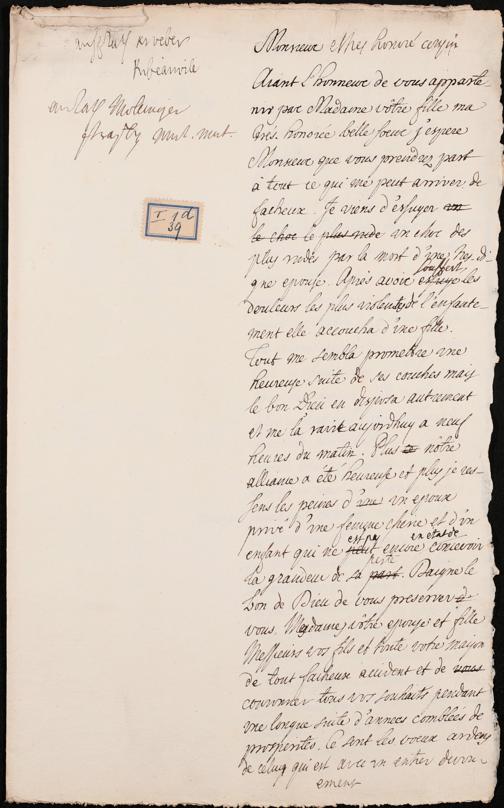 Monsieur et tres honoré cousin
Aiant l'honneur de vous apparte-
nir par Madame vôtre fille ma
tres. honorée belle soeur j'espere
Monsieur que vous prendrez part
à tout ce qui me peut arriver de
facheux. Je viens d'essuyer un
le choc le plus rude un choc des
plus rudes par la mort d'une tres. di-
gne epouse. Après avoir essuyé souffert les
douleurs les plus violentes de l'enfante-
ment elle accoucha d'une fille.
Tout me sembla promettre une
heureuse suite de ses couches mais
le bon Dieu en disposa autrement
et me la ravit aujordhuy a neuf
heures du matin. Plus nôtre
alliance a eté heureuse et plus je res-
sens les peines d'une un epoux
privé d'une femme cherie et d'un
enfant qui ne peut est pas encore en etat de concevoir
la grandeur de sa part perte. Daigne le
bon de Dieu de vous preserver d
vous. Madame vôtre epouse et fille
Messieurs vos fils et toute votre maison
de tout facheux accident et de vous
couronner tous vos souhaits pendant
une longue suite d'années comblées de
prosperités. Ce sont les voeux ardens
de celuy qui est avec un entier devou-
ement
an Ralf Molinger
mut. mut.
I 1d
39